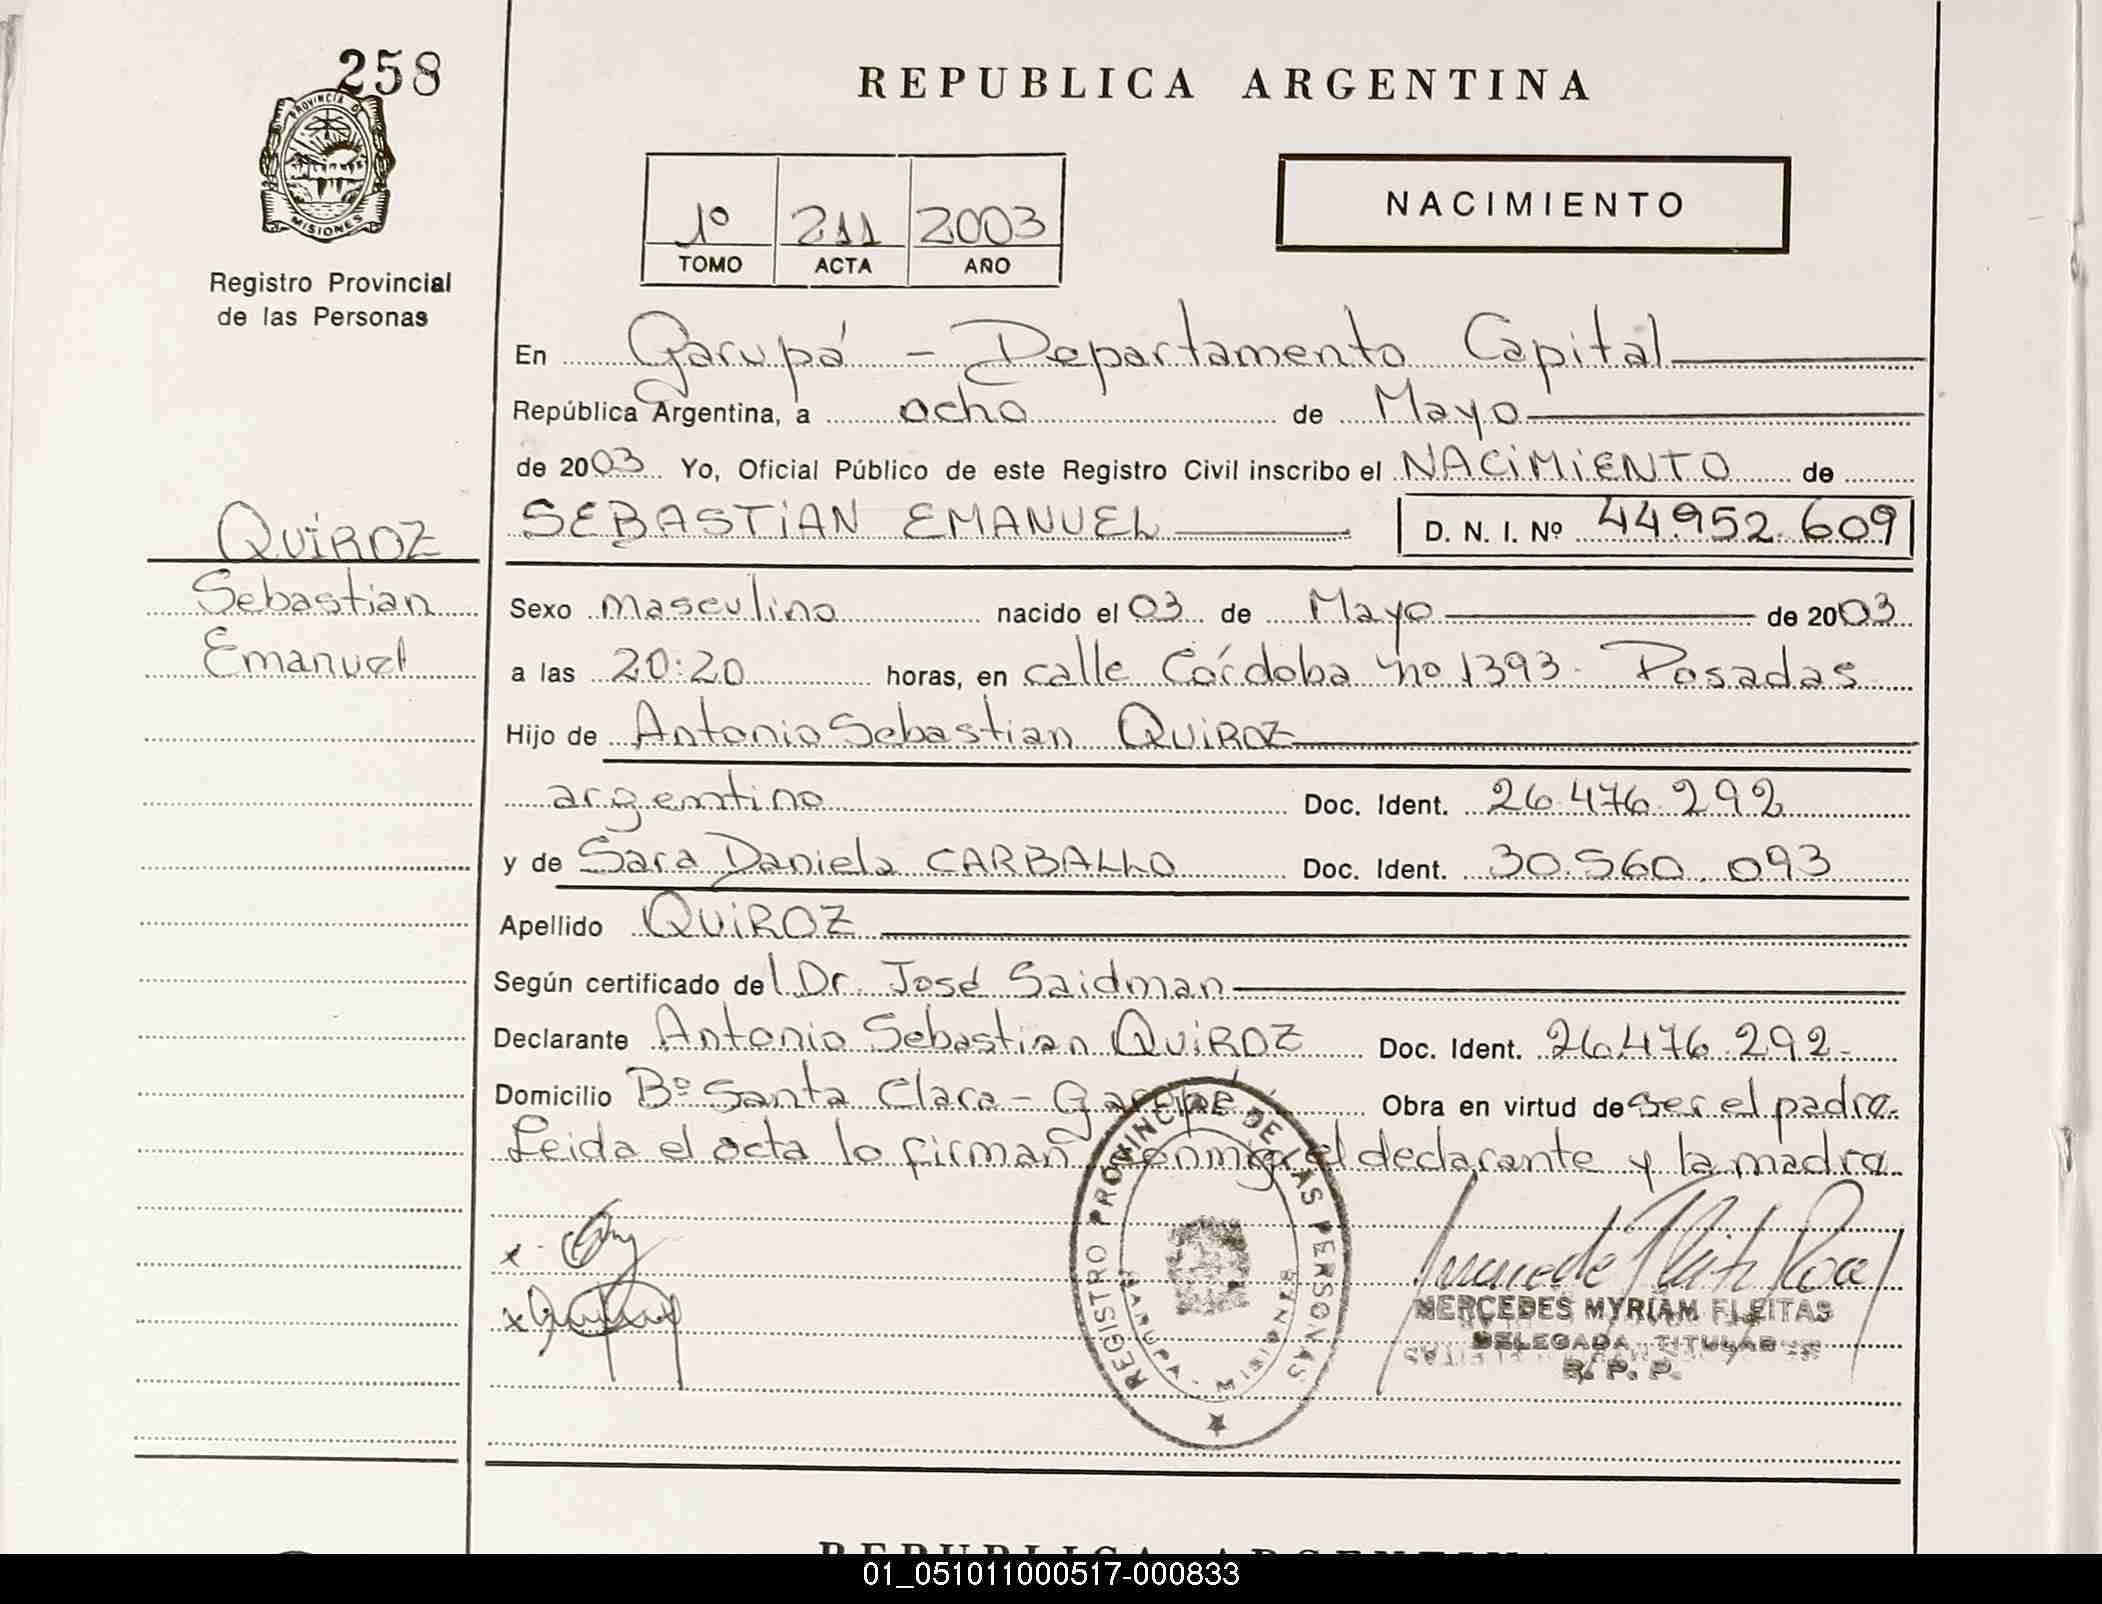 258
PROVINCIA DE
MISIONES
Registro Provincial
de las Personas
QUiROZ
Sebastian
Emanuel
REPUBLICA ARGENTINA
1º 211 2003
TOMO ACTA AÑO
NACIMIENTO
En Garupá - Departamento Capital
República Argentina, a ocho de Mayo
de 2003 Yo, Oficial Público de este Registro Civil inscribo el NACiMiENTO de
SEBASTiAN EMANUEL D. N. I. Nº 44.952.609
Sexo masculino nacido el 03 de Mayo de 2003
a las 20:20 horas, en calle Córdoba nº 1393 - Posadas
Hijo de Antonio Sebastian QUiROZ
argentino Doc. Ident. 26.476.292
y de Sara Daniela CARBALLO Doc. Ident. 30.560.093
Apellido QUiROZ
Según certificado del Dr. José Saidman
Declarante Antonio Sebastian QUiROZ Doc. Ident. 26.476.292-
Domicilio Bº Santa Clara - Garupá Obra en virtud de ser el padre.
Leida el acta lo firman conmigo el declarante y la madre
x
x
REGISTRO PROVINCIAL DE LAS PERSONAS
GARUPA - MISIONES
MERCEDES MYRIAM FLEITAS
DELEGADA TITULAR
R. P. P.
REPUBLICA ARGENTINA
01_051011000517-000833